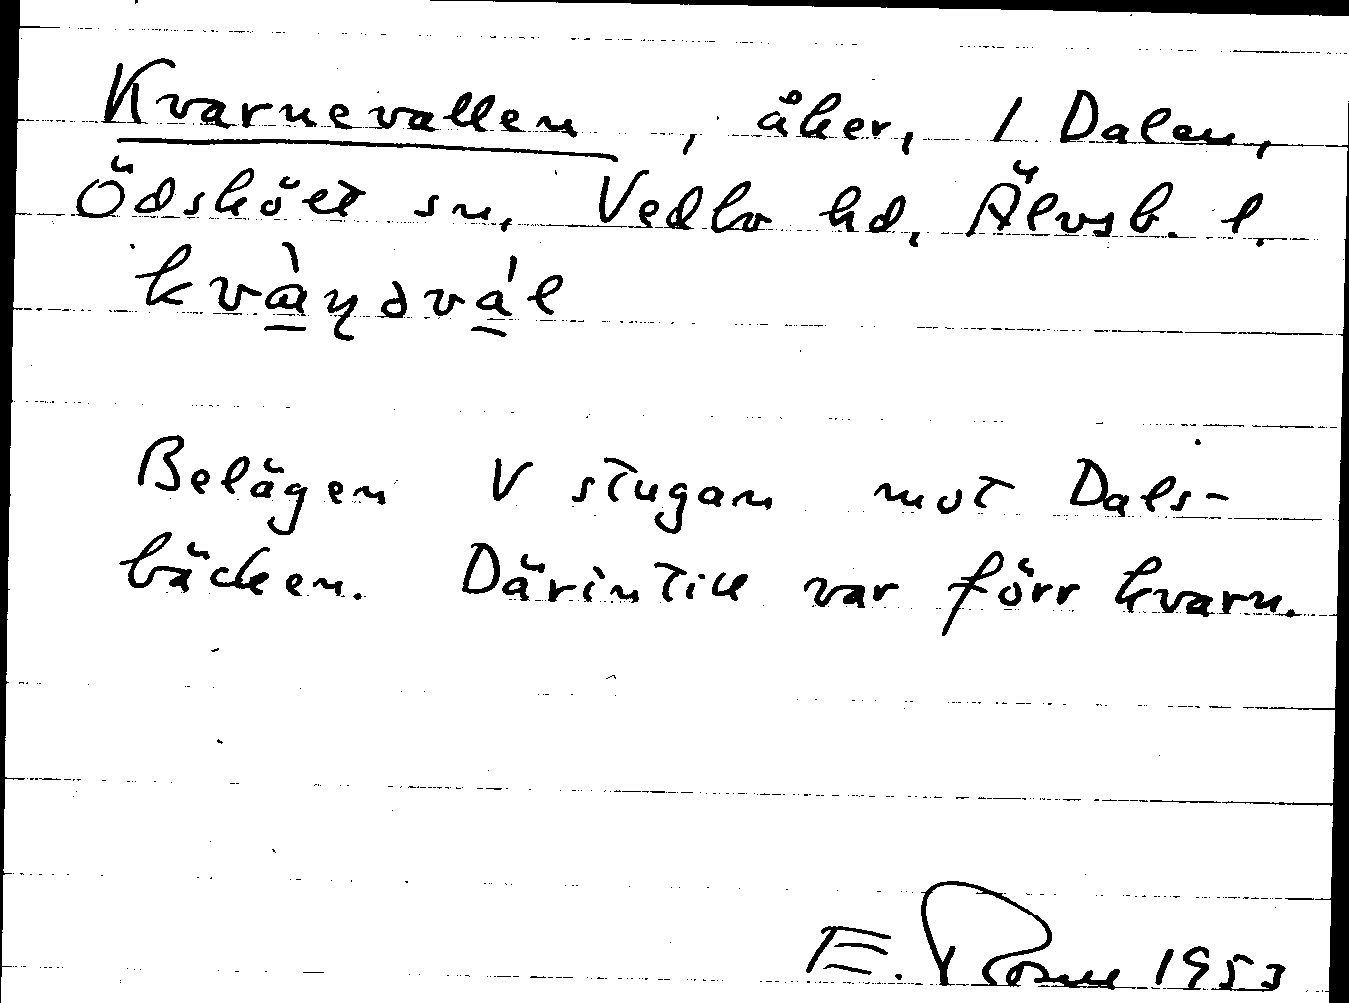 Kvarnevallen, åker, 1 Dalen,
Ödskölt sn, Vedbo hd, Älvsb. l.
kvàṇəvál
Belägen V stugan mot Dals-
bäcken. Därintill var förr kvarn.
E. 1953